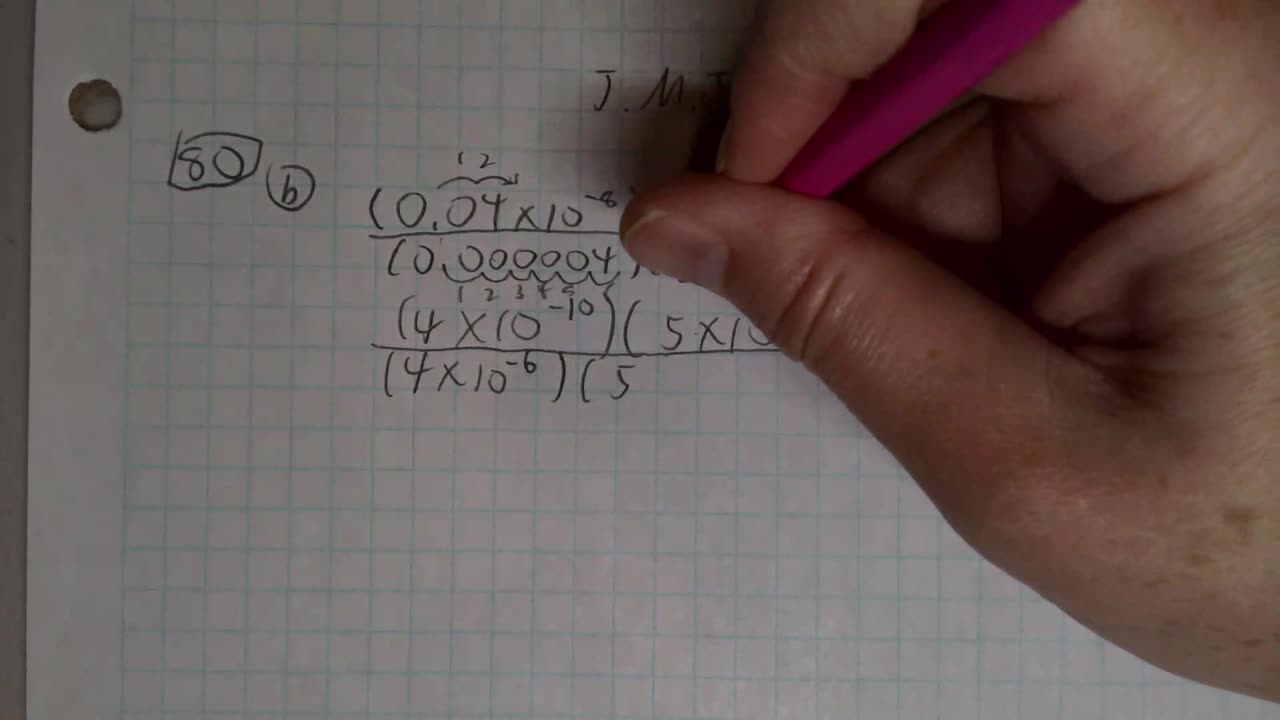 J.M.J
80 b (0.04×10⁻⁸
1 2
(0.000004)
1 2 3 4 5 6
(4×10⁻¹⁰)(5×10
(4×10⁻⁶)(5